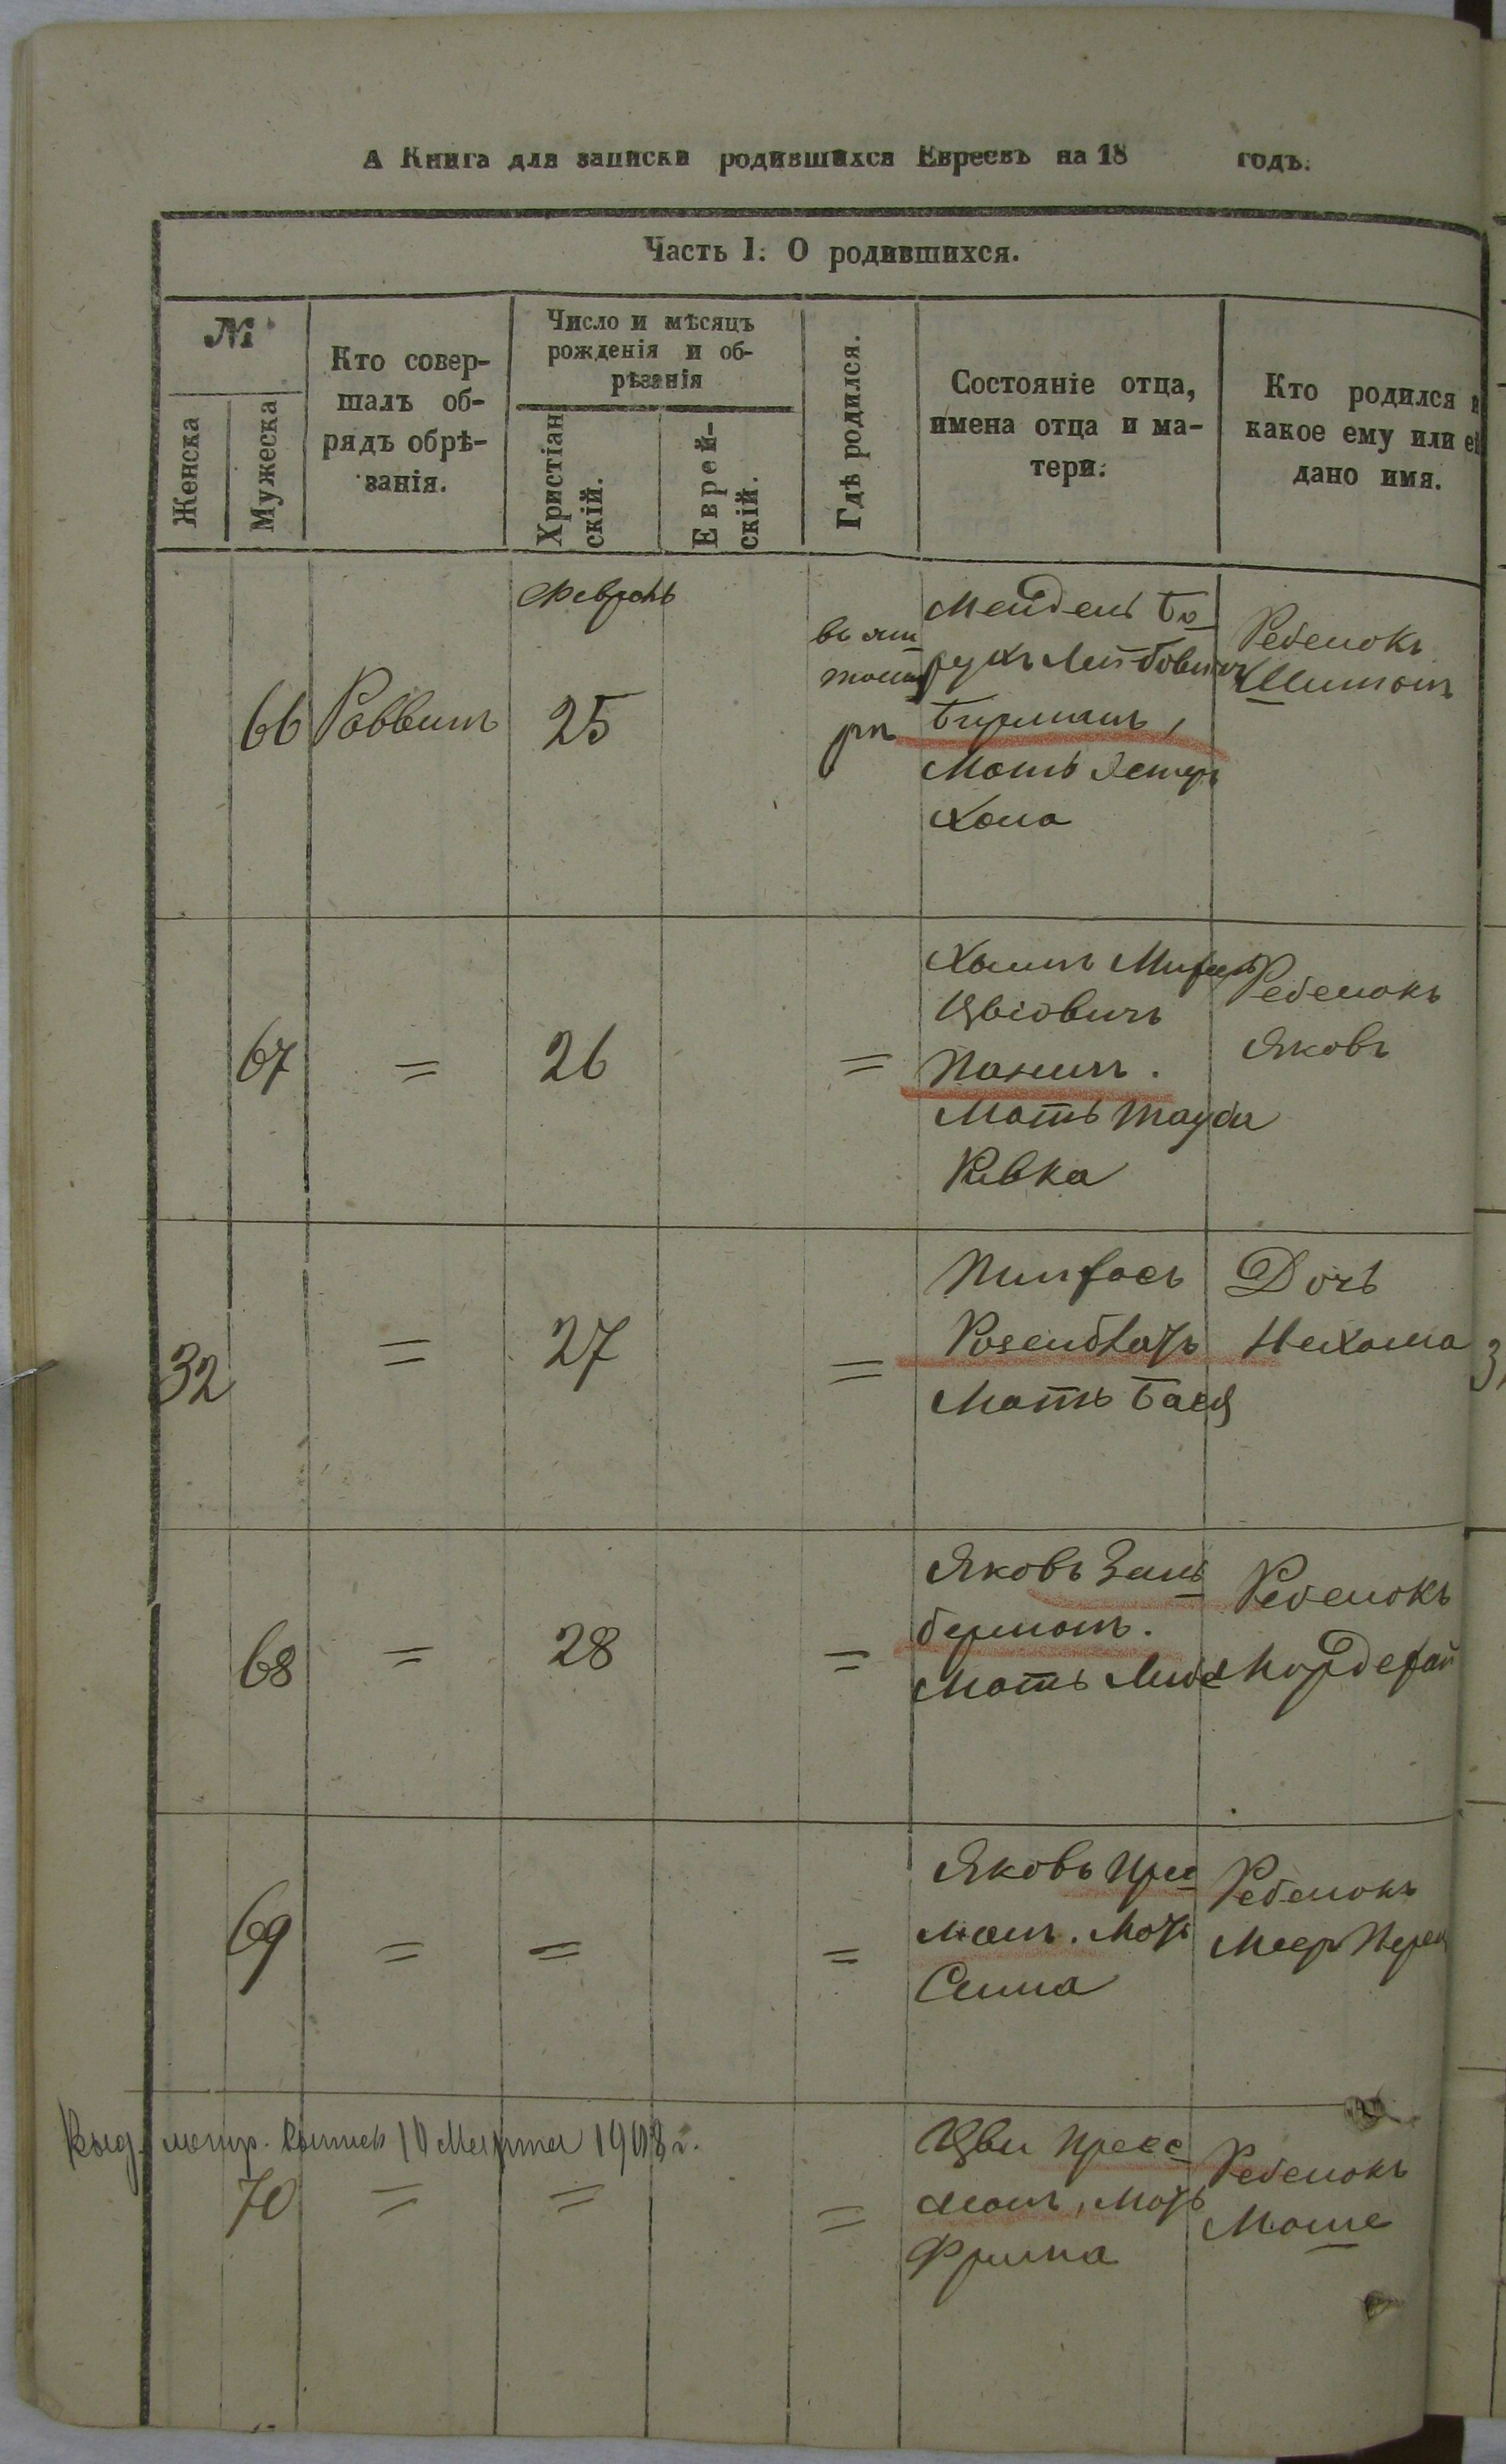 А Книга для записки родившихся Евреевъ на 18 годъ.
Часть I. О родившихся.
№
Женска
Мужеска
Кто совер-
шалъ об-
рядъ обрѣ-
занія.
Число и мѣсяцъ
рожденія и об-
рѣзанія
Христіан
скій.
Еврей-
скій.
Гдѣ родился.
Состояніе отца,
имена отца и ма-
тери.
Кто родился и
какое ему или ей
дано имя.
Февраль
66
Раввинъ
25
въ жи
томи
рѣ
Мендель Бо
рухъ Лейбовичъ
Бирманъ,
Мать Эстеръ
Хана
Ребенокъ
Шимонъ
67
=
26
=
Хаимъ
Цвіовичъ
Мать Тауба
Ривка
Ребенокъ
Яковъ
32
=
27
=
Пинхасъ
Розенблатъ
Мать Бася
Дочь
Нехама
68
=
28
=
Яковъ Зиль
берманъ.
Мать Либе
Ребенокъ
Мордехай
69
=
=
=
Яковъ
манъ. Мать
Сима
Ребенокъ
Меер Перец
Выд. метр. выпись 10 Марта 1908 г.
70
=
=
=
Цви Пресс
манъ, Мать
Фрима
Ребенокъ
Моше